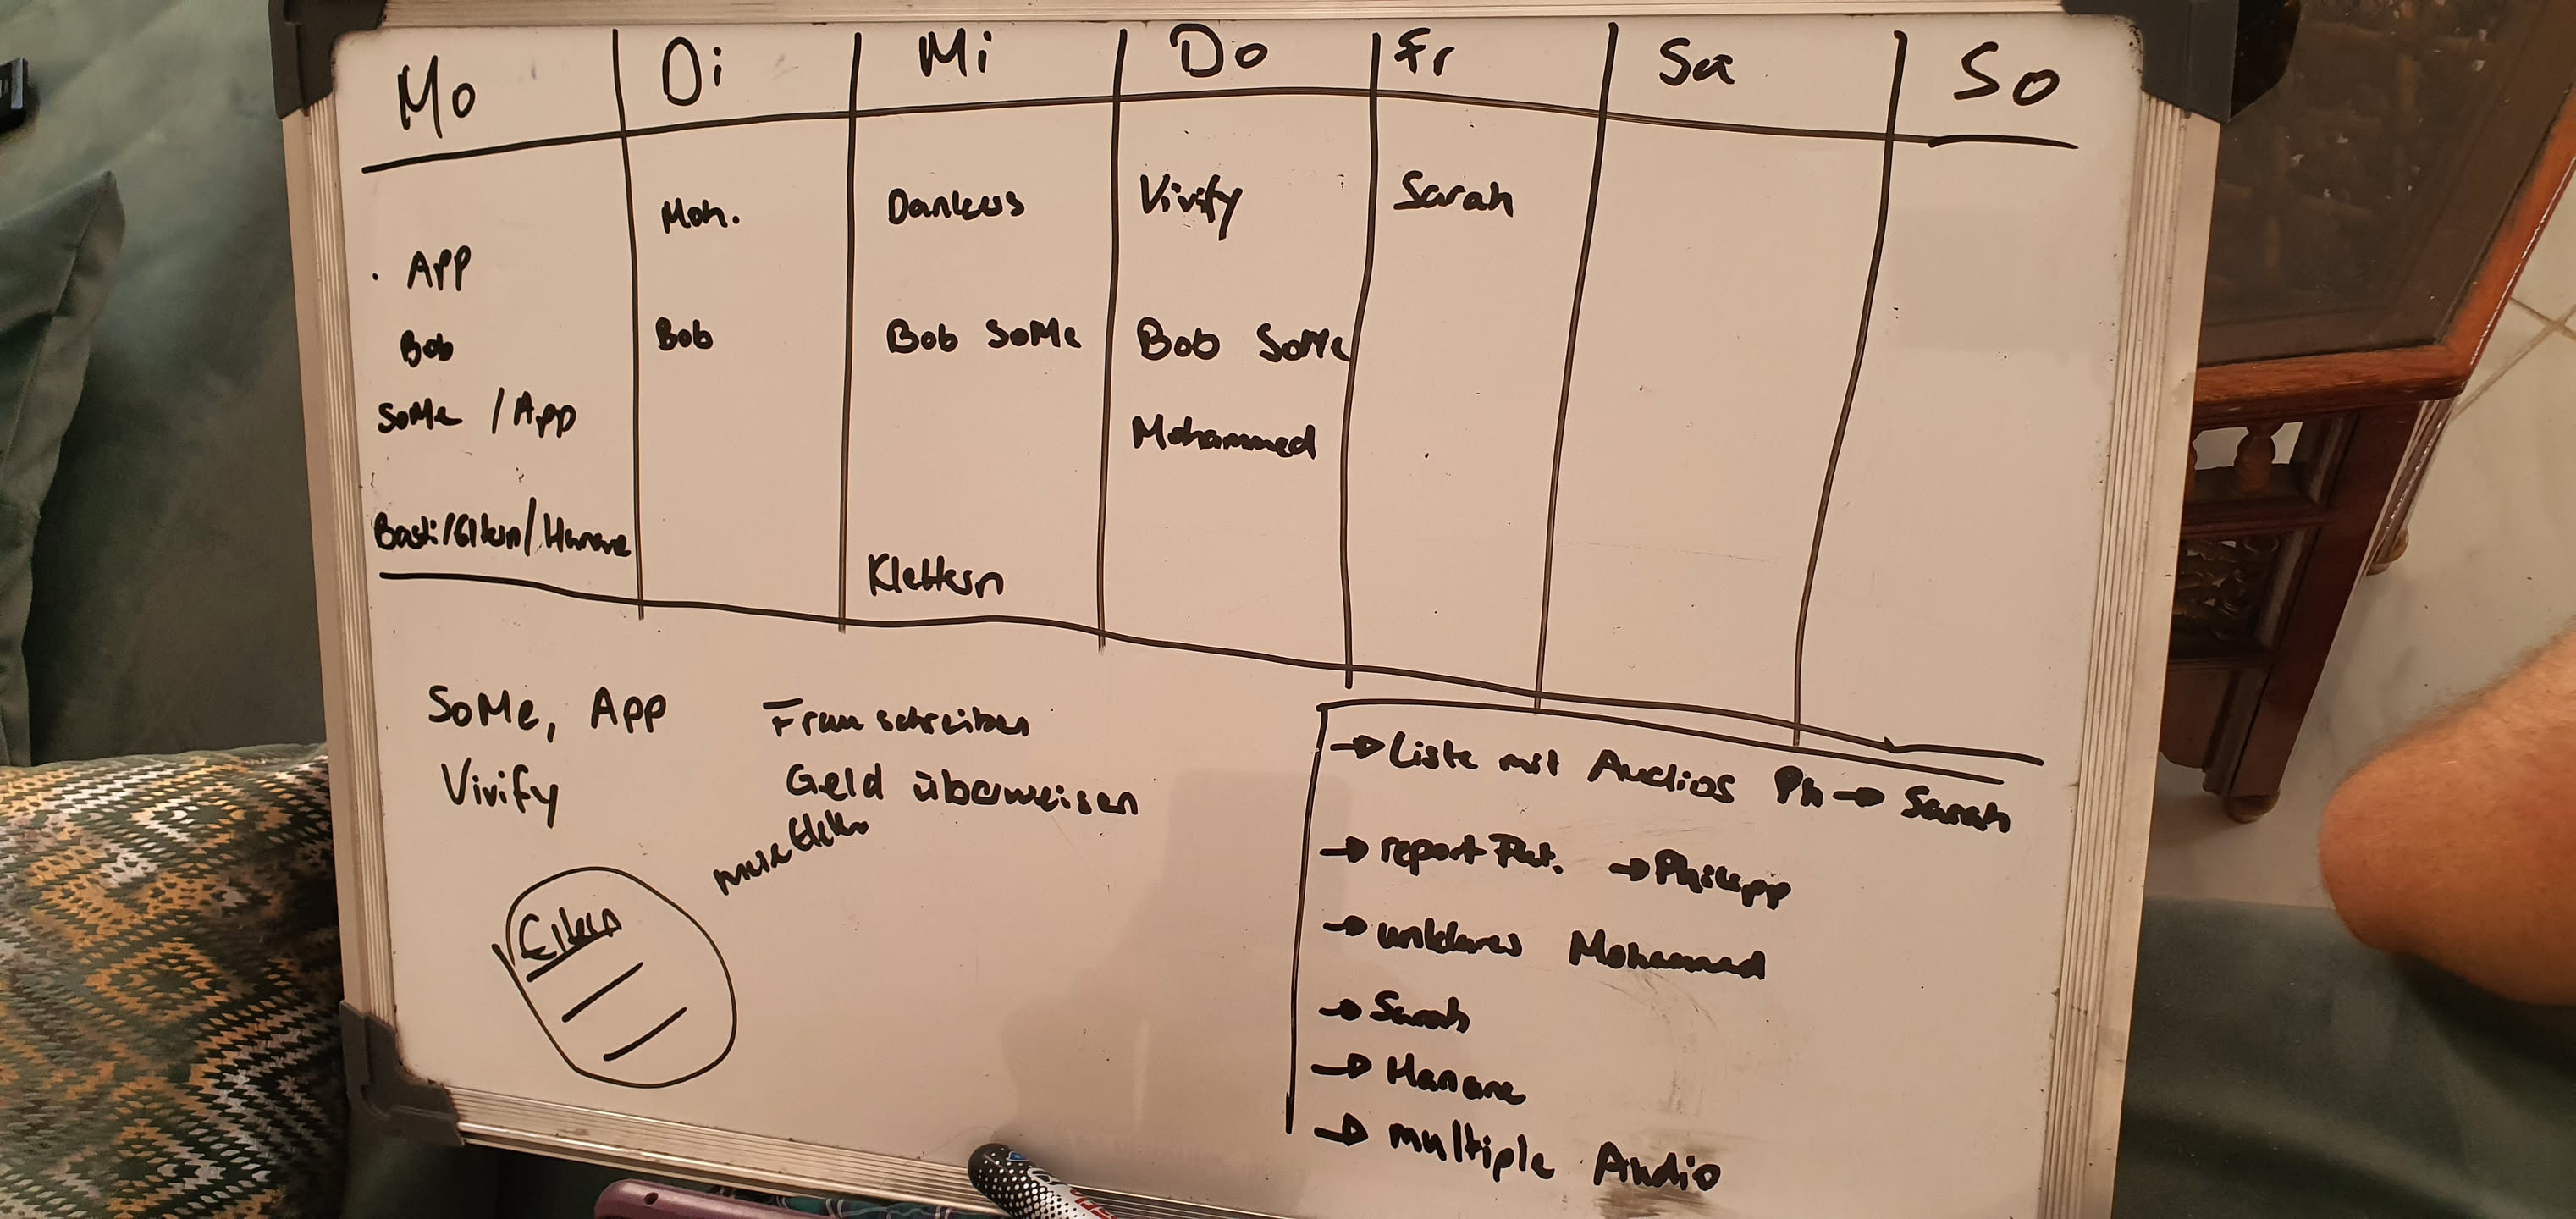 Mo Di Mi Do Fr Sa So
Moh. Dankus Vivify Sarah
APP
Bob Bob Bob SoMe Bob SoMe
SoMe / App Mohammed
Basti/Eltern/Hanane
Klettern
SoMe, App
Vivify
schreiben
Geld überweisen
Eltern
→ Liste mit Audios Ph → Sarah
→ report → Philipp
→ Mohammed
→ Sarah
→ Hanane
→ multiple Audio